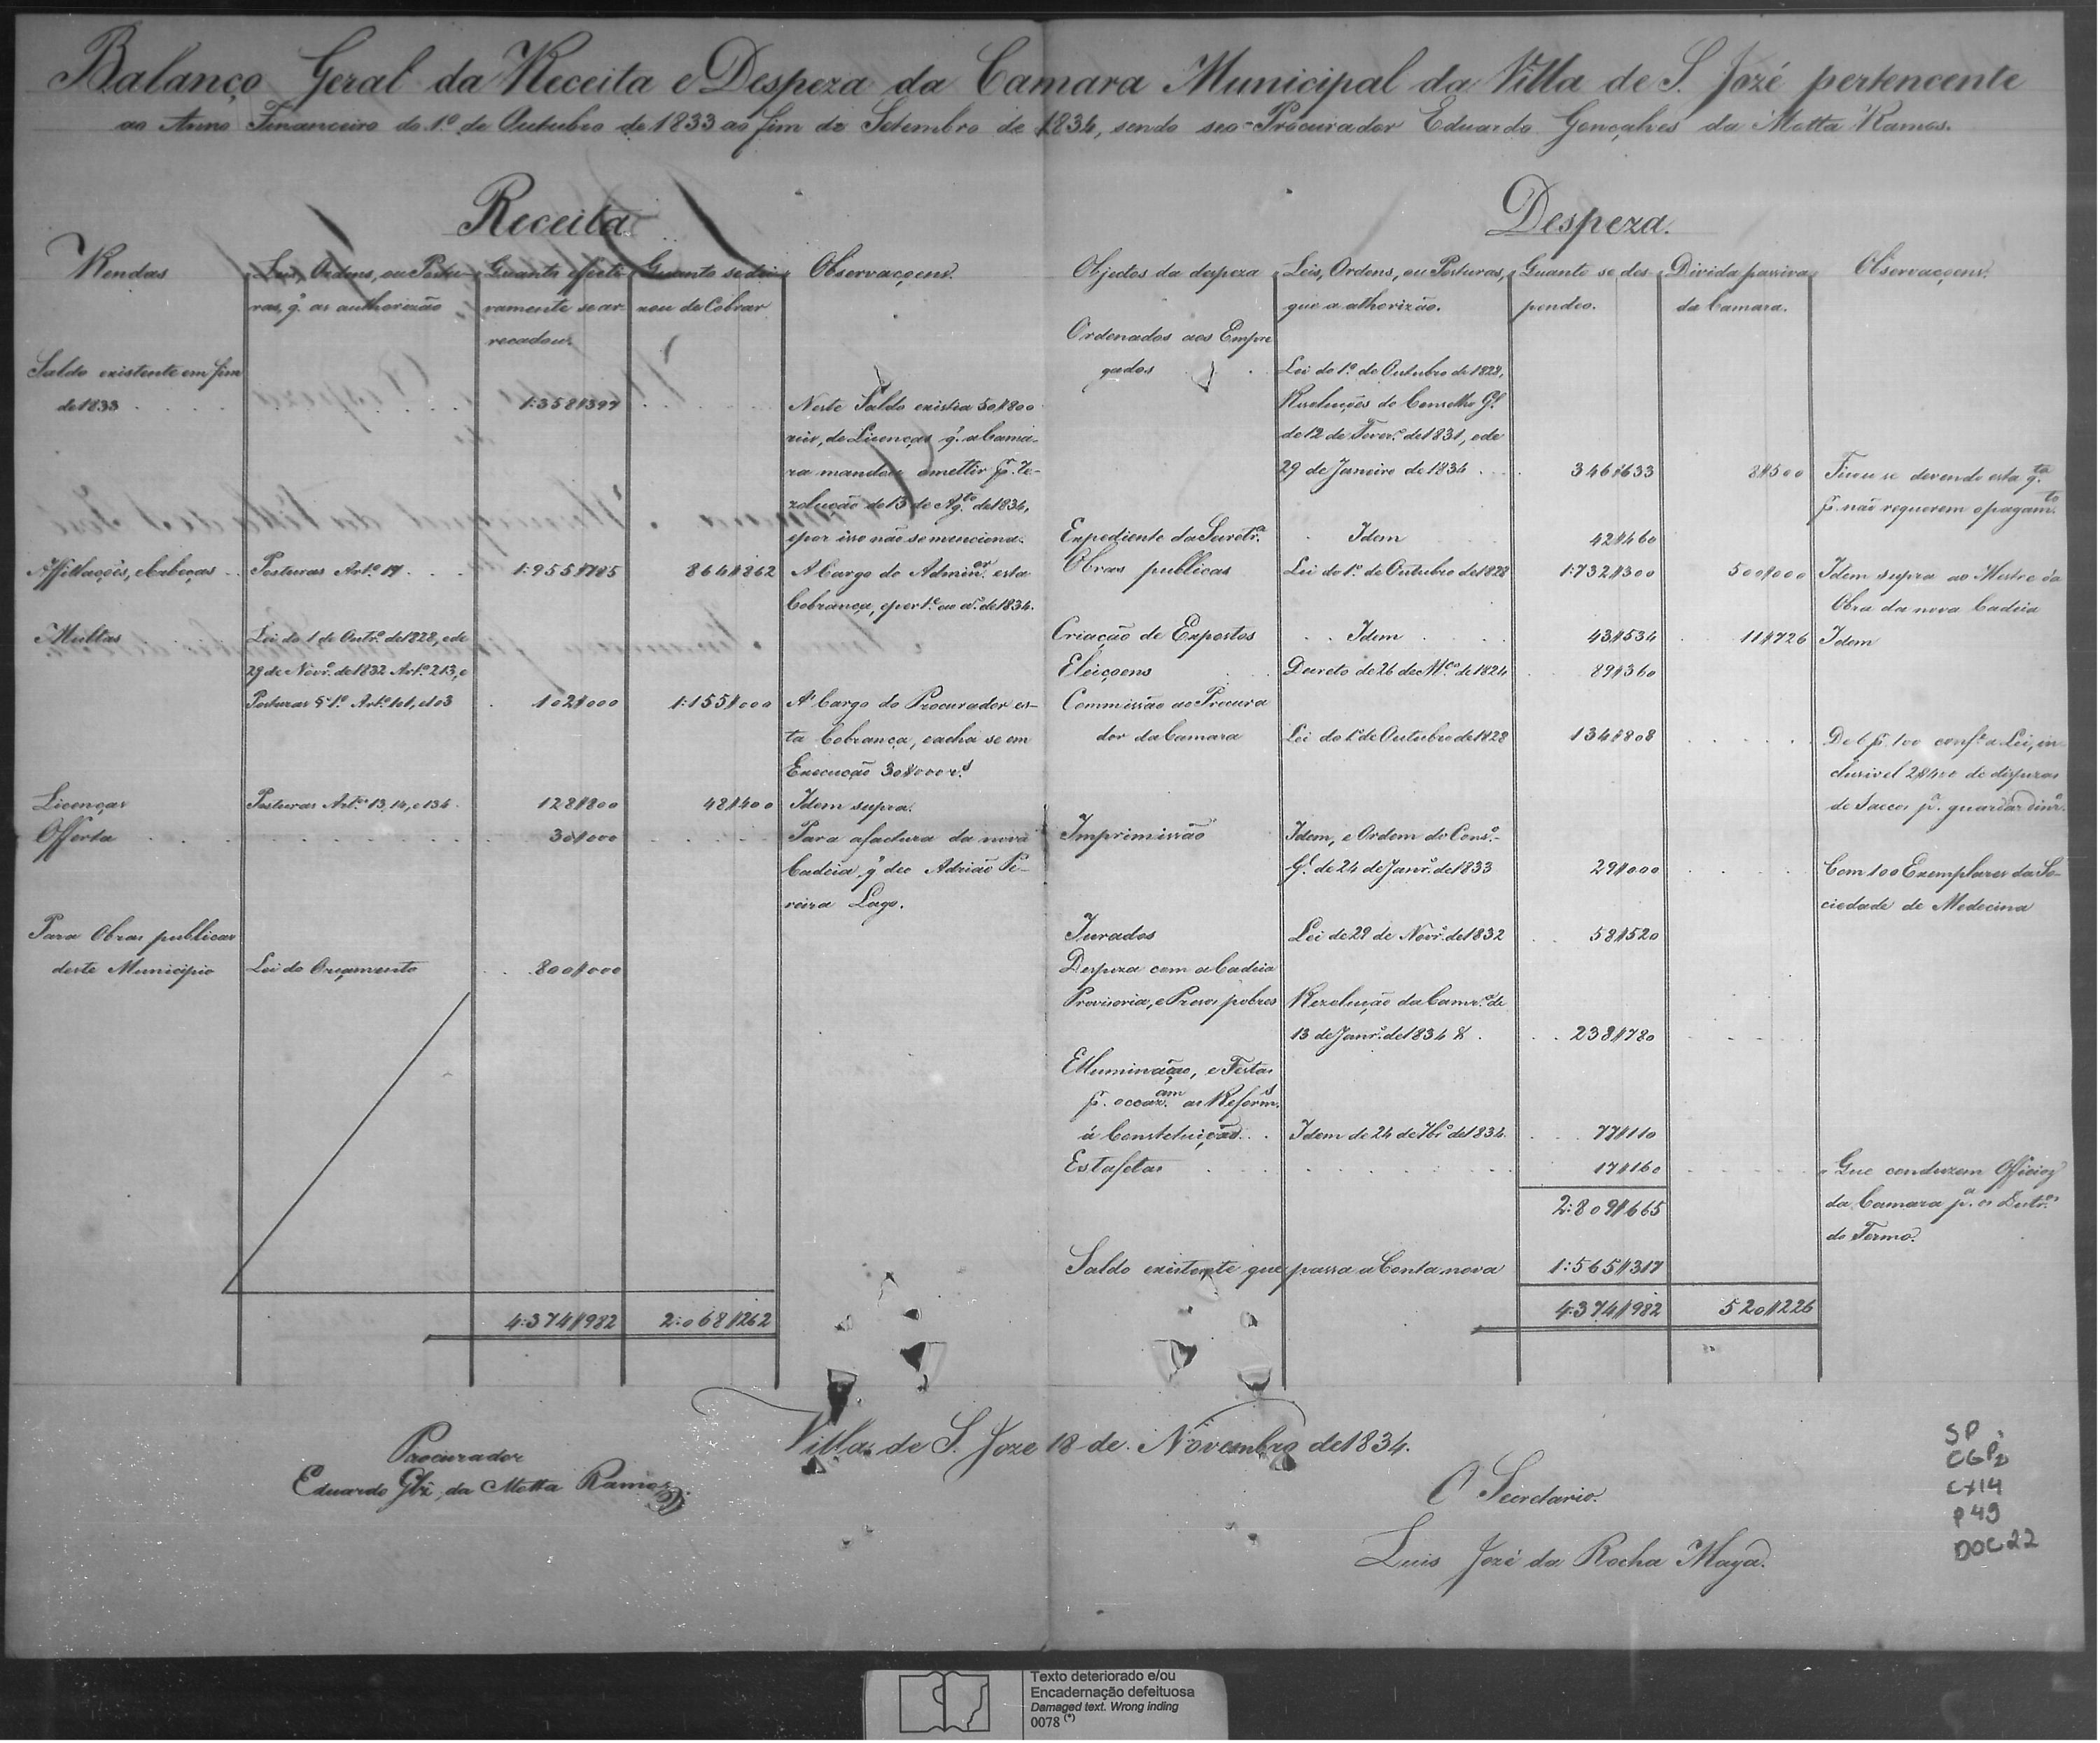 Balanço Geral da Receita e Despeza da Camara Municipal da Villa de S. Jozé pertencente
ao Anno Financeiro do 1.º de Outubro de 1833 ao fim de Setembro de 1834, sendo seo Procurador Eduardo Gonçalves da Motta Ramos.
Receita
Rendas
Leis, Ordens, ou Postu-
ras, q. as authorizão
Quanto effecti
vamente se ar
recadou.
Quanto se dei
xou de Cobrar
Observaçoens.
Saldo existente em fim
de 1833
1:358$397
Neste Saldo existia 50$800
reis, de Licenças q. a Cama-
ra mandou omettir p. Re-
zolução de 13 de Ag.to de 1834,
e por isso não se menciona.
Affillaçoẽs, e Cabeças
Posturas Art.º 17
1:955$785
864$862
A Cargo do Admin.or esta
Cobrança, e por 1.º ou a.º de 1834.
Multas
Lei do 1.º de Outr.º de 1828, e de
29 de Novr.º de 1832 Art.º 213, e
Posturas § 1.º Art.º 101, e 103
102$000
1:155$000
A Cargo do Procurador es-
ta Cobrança, e acha se em
Execução 30$000 r.s
Licenças
Posturas Art.º 13, 14, e 134
128$800
48$400
Idem supra.
Offerta
30$000
Para a factura da nova
Cadeia q. deo Adrião Pe-
reira Lago.
Para Obras publicas
deste Municipio
Lei do Orçamento
800$000
4:374$982
2:068$262
Despeza.
Objectos da despeza
Leis, Ordens, ou Posturas,
que a athorizão.
Quanto se des
pendeo.
Divida passiva
da Camara.
Observaçoens.
Ordenados aos Empre
gados
Lei do 1.º de Outubro de 1828,
Rezoluções do Conselho G.l
de 12 de Fever.º de 1831, e de
29 de Janeiro de 1834
346$633
8$500
Ficou se devendo esta q.ta
p. não requerem o pagam.to
Expediente da Secret.a
Idem
42$460
Obras publicas
Lei do 1.º de Outubro de 1828
1:732$300
500$000
Idem supra ao Mestre da
Obra da nova Cadeia
Criação de Expostos
Idem
43$534
11$726
Idem
Eleiçoens
Decreto de 26 de M.ço de 1824
89$360
Commissão ao Procura
dor da Camara
Lei do 1.º de Outubro de 1828
134$808
De 6 p. 100 conf.e a Lei, in
clusivel 2$400 de dispezas
de Saccos p.a guardar dinr.º
Imprimissão
Idem, e Ordem do Cons.º
G.l de 24 de Janr.º de 1833
29$000
Com 100 Exemplares da So-
ciedade de Medecina
Jurados
Lei de 29 de Novr.º de 1832
58$520
Despeza com a Cadeia
Provisoria, e Prezos pobres
Rezolução da Camr.a de
13 de Janr.º de 1834 &
238$780
Elluminação, e Festas
p. occaz.am as Reform.s
á Constetuição
Idem de 24 de 7br.º de 1834
77$110
Estafetas
17$160
Que conduzem Officios
da Camara p.a os Destr.os
do Termo.
2:809$665
Saldo existente que passa a Conta nova
1:565$317
4:374$982
520$226
Villa de S. Joze 18 de Novembro de 1834.
Procurador
Eduardo Glz. da Motta Ramos
O Secretario.
Luis Jozé da Rocha Maya.
SP
CGP2
CX14
P49
DOC22
Texto deteriorado e/ou
Encadernação defeituosa
Damaged text. Wrong inding
0078 (*)